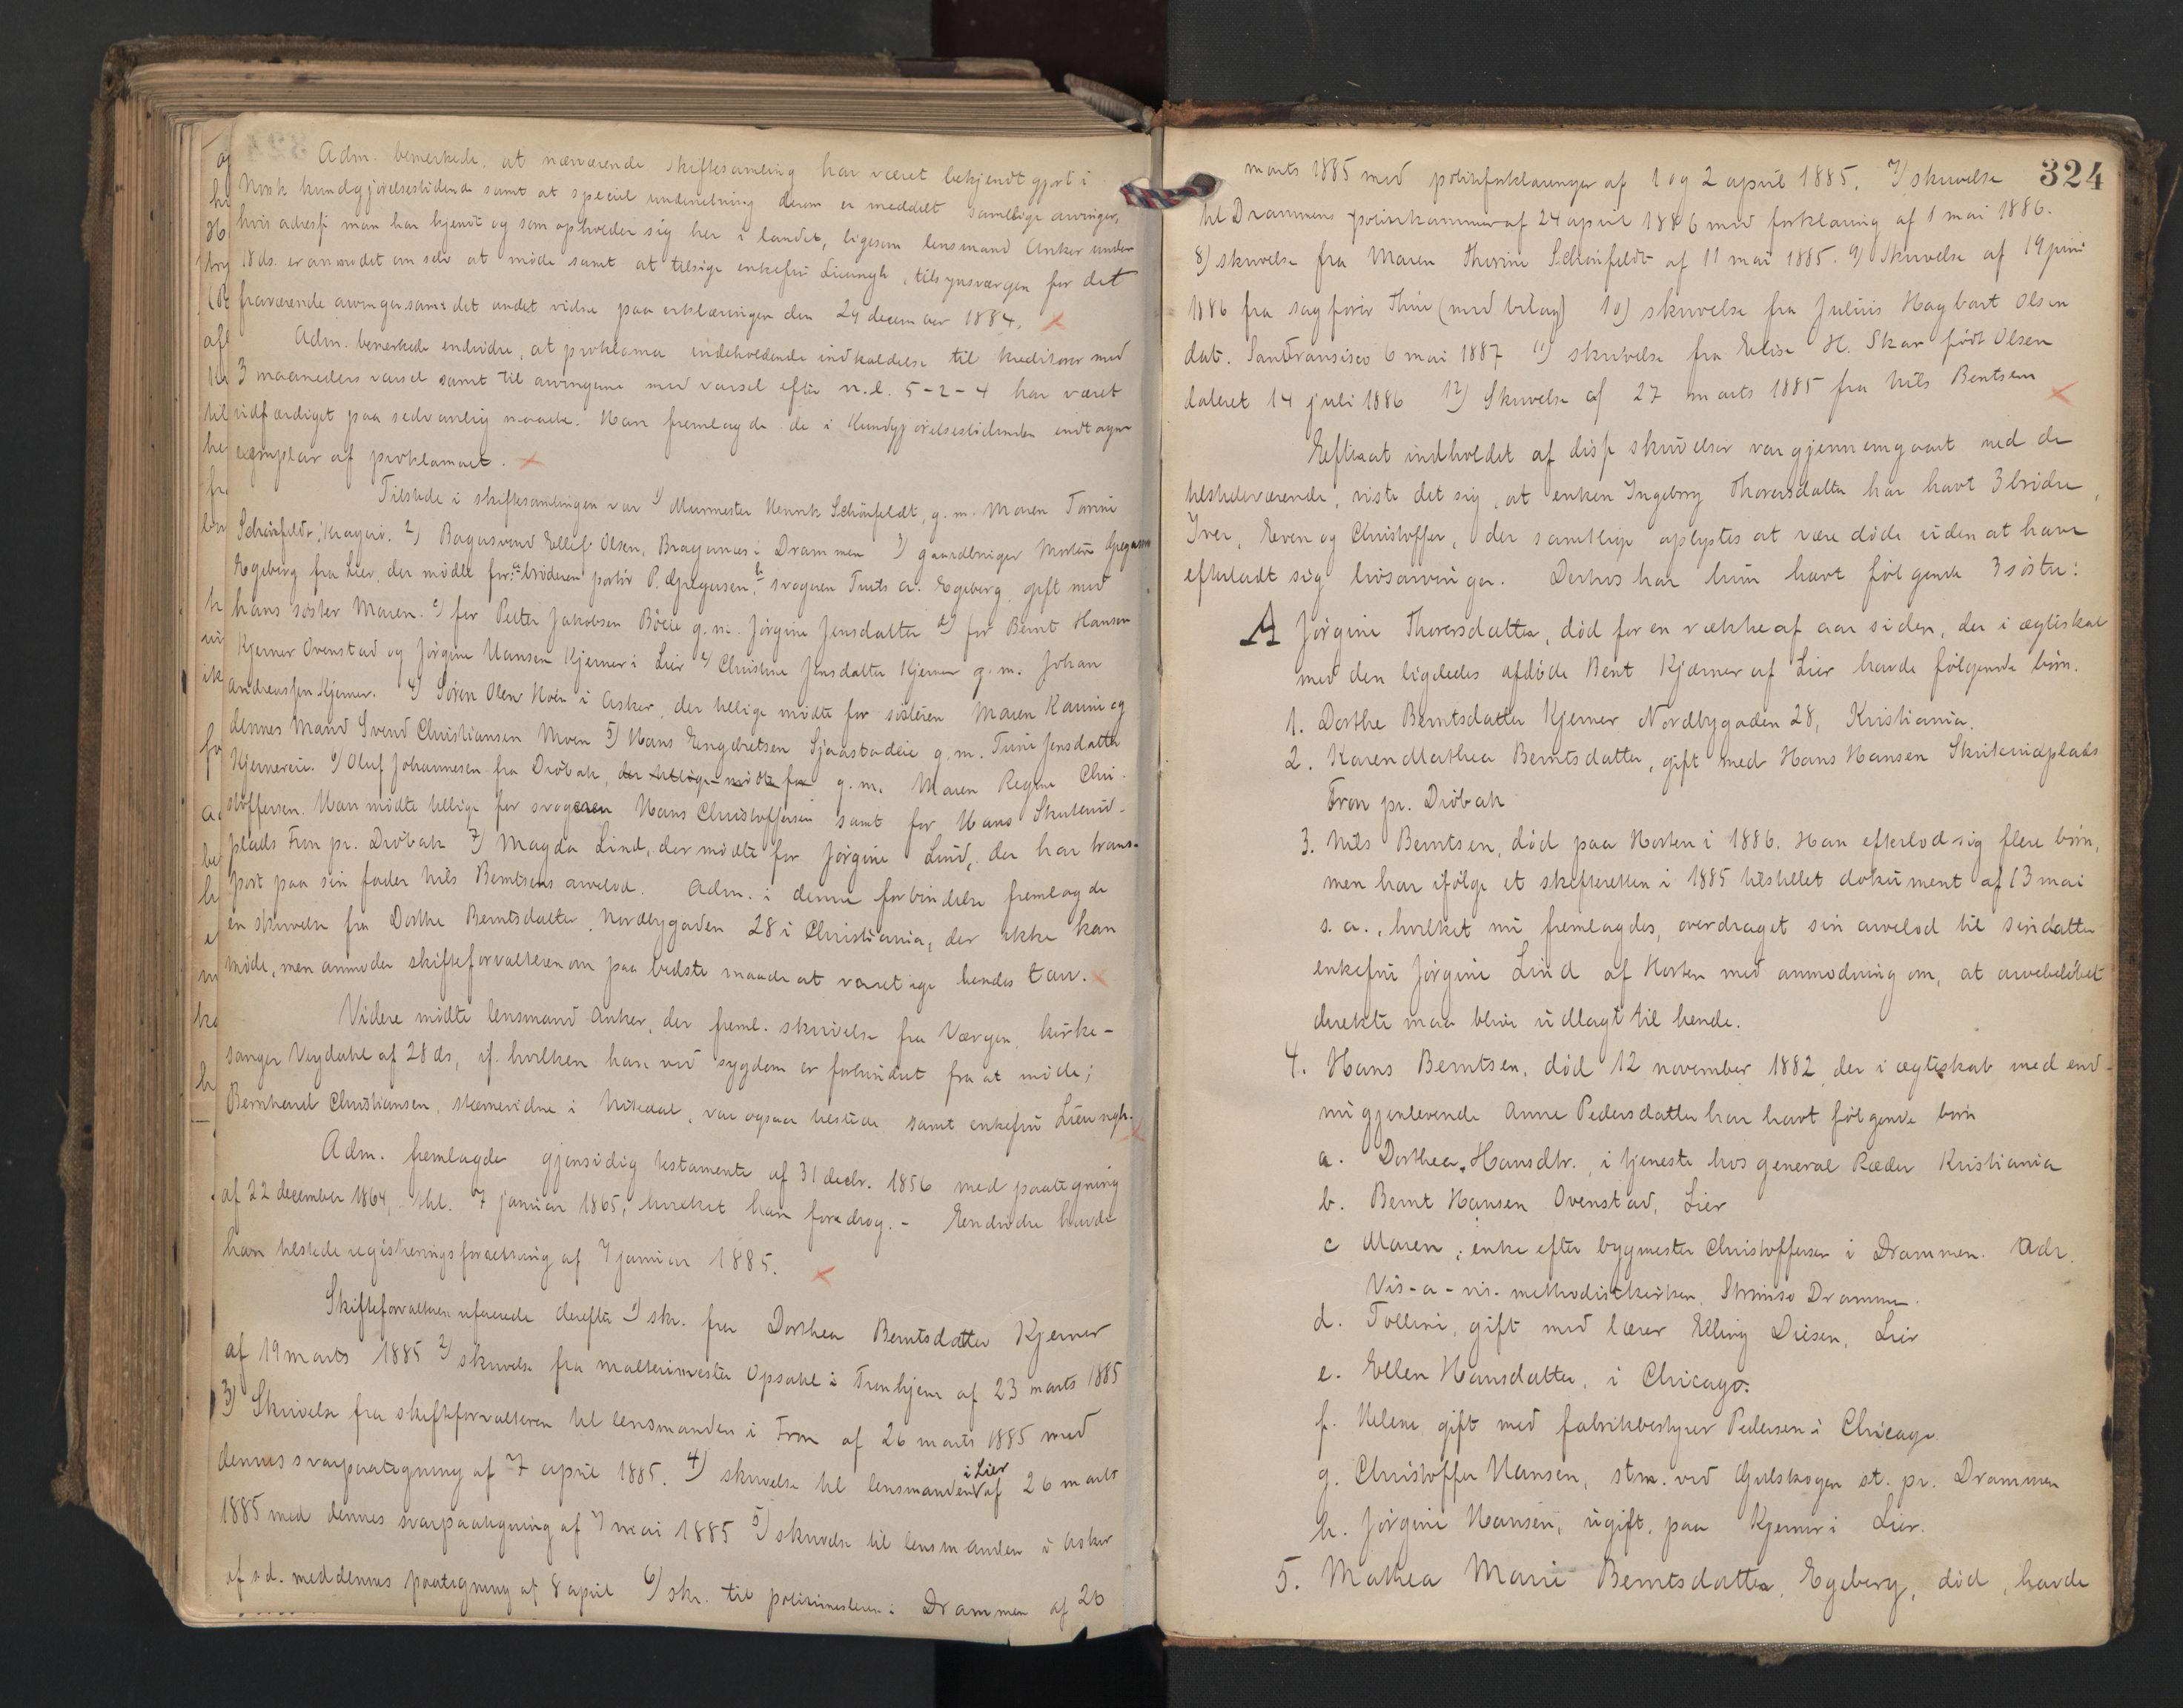 Adm. bemerkede, at nærværende skiftesamling har været bekjendtgjort i
Norsk kundgjørelsestidende samt at speciel underretning derom er meddelt samtlige arvinger,
hvis adresse man har kjendt og som opholder sig her i landet, ligesom lensmand Anker under
18 ds. er anmodet om selv at møde samt at tilsige enkefru , tilsynsværgen for det
fraværende arvinger samt det andet vidne paa erklæringen den 24 december 1884.
Adm. bemerkede endvidre, at proklama indeholdende indkaldelse til kreditorer med
3 maaneders varsel samt til arvingerne med varsel efter N.L. 5-2-4 har været
udfærdiget paa sedvanlig maade. Han fremlagde de i Kundgjørelsestidenden indtagne
exemplar af proklamaet.
Tilstede i skiftesamlingen var 1) Murmester Henrik Schönfeldt, g.m. Maren Tarine
Schönfeldt, Kragerø. 2) Bagersvend Ellef Olsen, Bragernes i Drammen 3) gaardbruger Morten
Egeberg fra Lier, der mødte for: a broderen portør P. b svogeren Truls A. Egeberg gift med
hans søster Maren. c) for Petter Jakobsen g.m. Jørgine Jensdatter d) for Bernt Hansen
Kjerner Ovenstad og Jørgine Hansen Kjerner i Lier e) Christine Jensdatter Kjerner g.m. Johan
Andreassen Kjerner. 4) Søren Olsen i Asker, der tillige mødte for søsteren Maren Karine og
dennes mand Svend Christiansen Moen 5) Hans Engebretsen g.m. Trine Jensdatter
Kjernereie. 6) Oluf Johannesen fra Drøbak, der tillige mødte for g.m. Maren Regine Chri-
stoffersen. Han mødte tillige for svogeren Hans Christoffersen samt for Hans
plads Fron pr. Drøbak 7) Magda Lind, der mødte for Jørgine Lind, der har trans-
port paa sin fader Nils Berntsens arvelod. Adm. i denne forbindelse fremlagde
en skrivelse fra Dorthe Berntsdatter, Nordbygaden 28 i Christiania, der ikke kan
møde, men anmoder skifteforvalteren om paa bedste maade at varetage hendes tarv.
Videre mødte lensmand Anker, der freml. skrivelse fra Værgen, kirke-
sanger af 28 ds, if. hvilken han ved sygdom er forhindret fra at møde;
Bernhard Christiansen, stevnevidne i , var ogsaa tilstede samt enkefru
Adm. fremlagde gjensidig testamente af 31 decbr. 1856 med paategning
af 22 december 1864, thl. 7 januar 1865, hvilket han foredrog. - Endvidre havde
han tilstede registreringsforretning af 7 januar 1885.
Skifteforvalteren refererede derefter 1) skr. fra Dorthea Berntsdatter Kjerner
af 19 marts 1885 2) skrivelse fra maltermester Opsahl i Tronhjem af 23 marts 1885
3) Skrivelse fra skifteforvalteren til lensmanden i Fron af 26 marts 1885 med
dennes svarpaategning af 7 april 1885. 4) skrivelse til lensmanden i Lier af 26 marts
1885 med dennes svarpaategning af 7 mai 1885 5) skrivelse til lensmanden i Asker
af s.d. med dennes paategning af 8 april 6) skr. til politimesteren i Drammen af 26
324
marts 1885 med politiforklaringer af 1 og 2 april 1885. 7) skrivelse
til Drammens politikammer af 24 april 1886 med forklaring af 1 mai 1886.
8) skrivelse fra Maren Thorine Schönfeldt af 11 mai 1885. 9) Skrivelse af 19 juni
1886 fra sagfører (med bilag) 10) skrivelse fra Julius Hagbart Olsen
dat. San Fransisco 6 mai 1887 11) skrivelse fra Elise H. Skar født Olsen
dateret 14 juli 1886 12) Skrivelse af 27 marts 1885 fra Nils Bentsen
Efterat indholdet af disse skrivelser var gjennemgaaet med de
tilstedeværende, viste det sig, at enken Ingeborg Thoresdatter har havt 3 brødre,
Iver, Even og Christoffer, der samtlige oplystes at være døde uden at have
efterladt sig livsarvinger. Derhos har hun havt følgende 3 søstre:
A Jørgine Thoresdatter, død for en række af aar siden, der i ægteskab
med den ligeledes afdøde Bent Kjærner af Lier havde følgende børn.
1. Dorthe Berntsdatter Kjerner Nordbygaden 28, Kristiania.
2. Karen Mathea Berntsdatter, gift med Hans Hansen
Fron pr. Drøbak
3. Nils Berntsen, død paa Horten i 1886. Han efterlod sig flere børn,
men har ifølge et skifteretten i 1885 tilstillet dokument af 13 mai
s.a., hvilket nu fremlagdes, overdraget sin arvelod til sin datter
enkefru Jørgine Lind af Horten med anmodning om, at arvebeløbet
direkte maa blive udlagt til hende.
4. Hans Berntsen, død 12 november 1882, der i ægteskab med end-
nu gjenlevende Anne Pedersdatter har havt følgende børn
a. Dorthea Hansdtr., i tjeneste hos general Ræder Kristiania
b. Bernt Hansen Ovenstad, Lier
c Maren, enke efter bygmester Christoffersen i Drammen. Adr.
Vis-a-vis methodistkirken, Strømsø Drammen.
d. Tolline, gift med lærer Elling Diesen, Lier
e. Ellen Hansdatter, i Chicago.
f. Helene, gift med fabrikbestyrer Pedersen i Chicago.
g. Christoffer Hansen, stm. ved Gulskogen st. pr. Drammen
h. Jørgine Hansen, ugift, paa Kjerner i Lier.
5. Mathea Marie Berntsdatter, Egeberg, død, havde